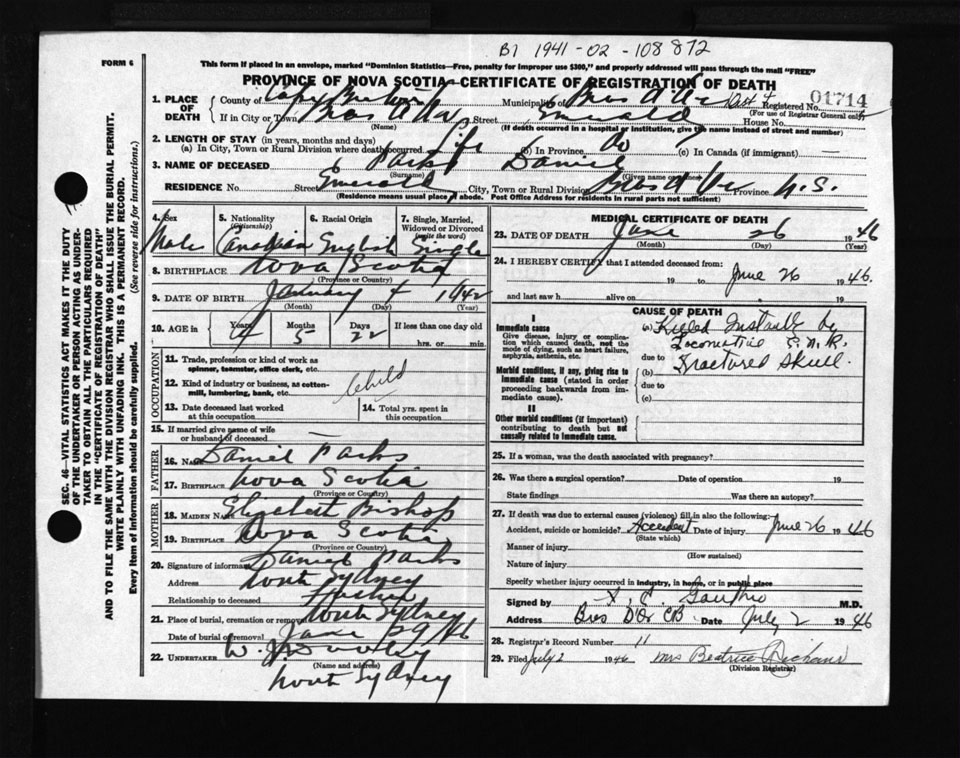 B1 1941-02-108872
FORM 6
This form if placed in an envelope, marked "Dominion Statistics—Free, penalty for improper use $300," and properly addressed will pass through the mail "FREE"
PROVINCE OF NOVA SCOTIA—CERTIFICATE OF REGISTRATION OF DEATH
1. PLACE OF DEATH
County of Cape Breton Municipality Bras d'Or Registered No. 01714
(For use of Registrar General only)
If in City or Town Bras d'Or Street Emerald House No.
(Name) (If death occurred in a hospital or institution, give the name instead of street and number)
2. LENGTH OF STAY (in years, months and days)
(a) In City, Town or Rural Division where death occurred Life (b) In Province do (c) In Canada (if immigrant) —
3. NAME OF DECEASED Parks Daniel
(Surname) (Given name or names)
RESIDENCE No. Street Emerald City, Town or Rural Division Bras d'Or Province N.S.
(Residence means usual place of abode. Post Office Address for residents in rural parts not sufficient)
4. Sex 5. Nationality (Citizenship) 6. Racial Origin 7. Single, Married, Widowed or Divorced (write the word)
Male Canadian English Single
8. BIRTHPLACE Nova Scotia
(Province or Country)
9. DATE OF BIRTH January 4 1942
(Month) (Day) (Year)
10. AGE in Years Months Days If less than one day old
4 5 22 hrs. or min.
OCCUPATION
11. Trade, profession or kind of work as spinner, teamster, office clerk, etc.
12. Kind of industry or business, as cotton-mill, lumbering, bank, etc. Child
13. Date deceased last worked at this occupation
14. Total yrs. spent in this occupation
15. If married give name of wife or husband of deceased —
FATHER
16. Name Daniel Parks
17. Birthplace Nova Scotia
(Province or Country)
MOTHER
18. Maiden Name Elizabeth Bishop
19. Birthplace Nova Scotia
(Province or Country)
20. Signature of informant Daniel Parks
Address North Sydney
Relationship to deceased Father
21. Place of burial, cremation or removal North Sydney
Date of burial or removal June 29/46
22. UNDERTAKER W. J.
(Name and address)
North Sydney
MEDICAL CERTIFICATE OF DEATH
23. DATE OF DEATH June 26 1946
(Month) (Day) (Year)
24. I HEREBY CERTIFY that I attended deceased from:
19 to June 26 1946.
and last saw h alive on 19
I
Immediate cause
Give disease, injury or complication which caused death, not the mode of dying, such as heart failure, asphyxia, asthenia, etc.
Morbid conditions, if any, giving rise to immediate cause (stated in order proceeding backwards from immediate cause).
II
Other morbid conditions (if important) contributing to death but not causally related to immediate cause.
CAUSE OF DEATH
(a) Killed Instantly by
Locomotive
due to Fractured Skull.
(b)
due to
(c)
25. If a woman, was the death associated with pregnancy?
26. Was there a surgical operation? Date of operation 19
State findings Was there an autopsy?
27. If death was due to external causes (violence) fill in also the following:
Accident, suicide or homicide? Accident Date of injury June 26 1946
(State which)
Manner of injury
(How sustained)
Nature of injury
Specify whether injury occurred in industry, in home, or in public place
Signed by M.D.
Address Bras D'Or CB Date July 2 1946
28. Registrar's Record Number 11
29. Filed July 2 1946 Mrs Beatrice
(Division Registrar)
SEC. 46—VITAL STATISTICS ACT MAKES IT THE DUTY
OF THE UNDERTAKER OR PERSON ACTING AS UNDERTAKER TO OBTAIN ALL THE PARTICULARS REQUIRED
IN THE "CERTIFICATE OF REGISTRATION OF DEATH"
AND TO FILE THE SAME WITH THE DIVISION REGISTRAR WHO SHALL ISSUE THE BURIAL PERMIT.
WRITE PLAINLY WITH UNFADING INK. THIS IS A PERMANENT RECORD.
Every item of information should be carefully supplied. (See reverse side for instructions.)